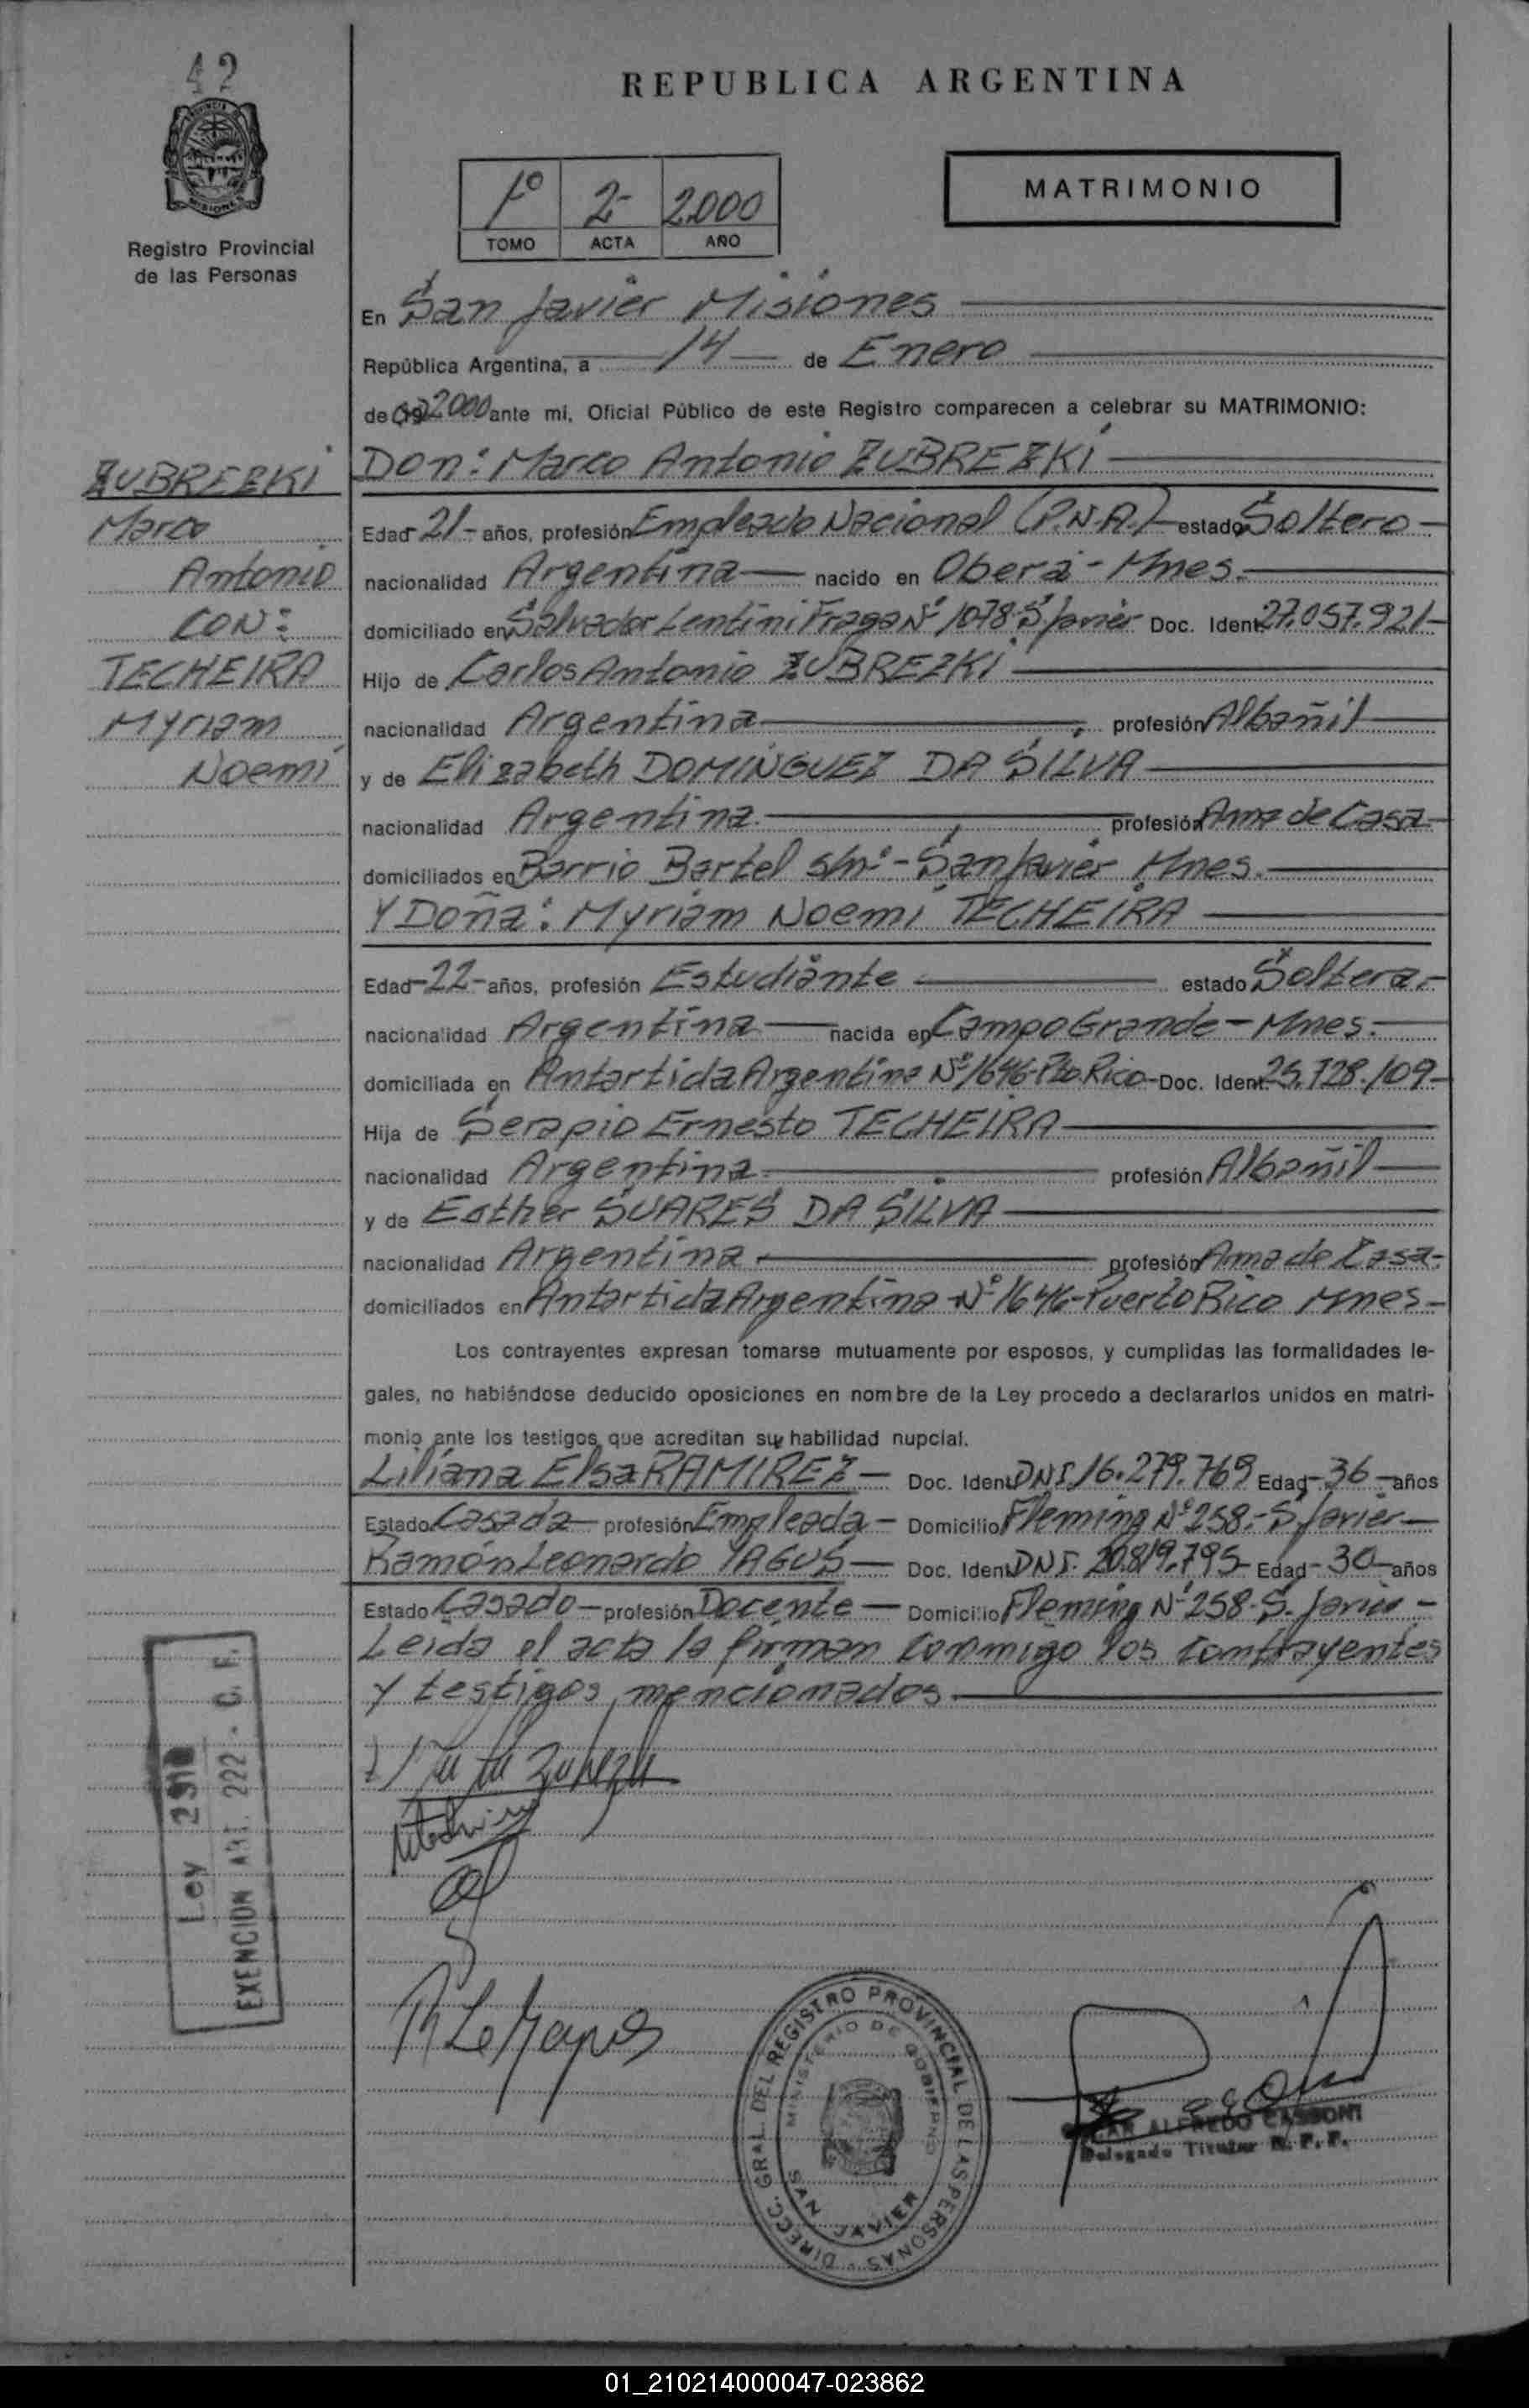 42
REPUBLICA ARGENTINA
MATRIMONIO
1º 2- 2000
TOMO ACTA AÑO
Registro Provincial
de las Personas
En San Javier Misiones
República Argentina, a 14 de Enero
de 2000 ante mi, Oficial Público de este Registro comparecen a celebrar su MATRIMONIO:
ZUBREZKI
Marco
Antonio
CON:
TECHEIRA
Myriam
Noemi
Don: Marco Antonio ZUBREZKI
Edad 21- años, profesión Empleado Nacional (P.N.A.) estado Soltero
nacionalidad Argentina nacido en Oberá - Mnes.
domiciliado en Salvador Lentini Fraga Nº 1078-S. Javier Doc. Ident. 27.057.921-
Hijo de Carlos Antonio ZUBREZKI
nacionalidad Argentina , profesión Albañil
y de Elizabeth DOMINGUEZ DA SILVA
nacionalidad Argentina. profesión Ama de Casa-
domiciliados en Barrio Bartel s/nº - San Javier Mnes.
Y Doña: Myriam Noemi TECHEIRA
Edad -22- años, profesión Estudiante estado Soltera.-
nacionalidad Argentina nacida en Campo Grande - Mnes.
domiciliada en Antartida Argentina Nº 1646-Pto. Rico- Doc. Ident. 25.728.109-
Hija de Serapio Ernesto TECHEIRA
nacionalidad Argentina. profesión Albañil
y de Esther SUARES DA SILVA
nacionalidad Argentina. profesión Ama de Casa.
domiciliados en Antartida Argentina Nº 1646-Puerto Rico Mnes-
Los contrayentes expresan tomarse mutuamente por esposos, y cumplidas las formalidades le-
gales, no habiéndose deducido oposiciones en nombre de la Ley procedo a declararlos unidos en matri-
monio ante los testigos que acreditan su habilidad nupcial.
Liliana Elsa RAMIREZ - Doc. Ident. DNI. 16.279.769 Edad -36- años
Estado Casada profesión Empleada - Domicilio Fleming Nº 258.- S. Javier-
Ramón Leonardo YAGUS - Doc. Ident. DNI. 20.819.795- Edad -30- años
Estado Casado - profesión Docente - Domicilio Fleming Nº 258-S. Javier -
Leida el acta la firman conmigo los contrayentes
y testigos mencionados.
Ley 2910
EXENCION ART. 222 - C. F.
DIRECC. GRAL. DEL REGISTRO PROVINCIAL DE LAS PERSONAS
MINISTERIO DE GOBIERNO
SAN JAVIER
ALFREDO CASSONI
Delegado Titular R. P. P.
01_210214000047-023862